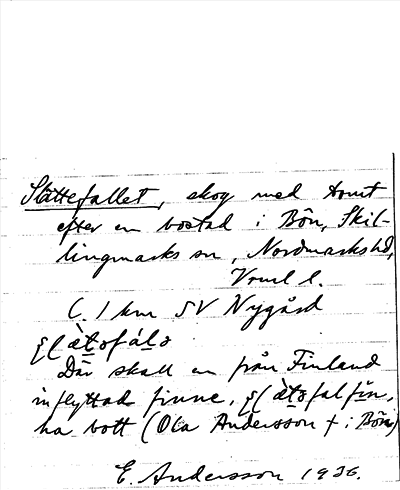 Slättefallet, skog med tomt
efter en bostad i Bön, Skil-
lingmarks sn, Nordmarks hd,
Vrml l.
C. 1 km SV Nygård
Där skall en från Finland
inflyttad finne,
ha bott (Ola Andersson † i Bön)
E. Andersson 1936.